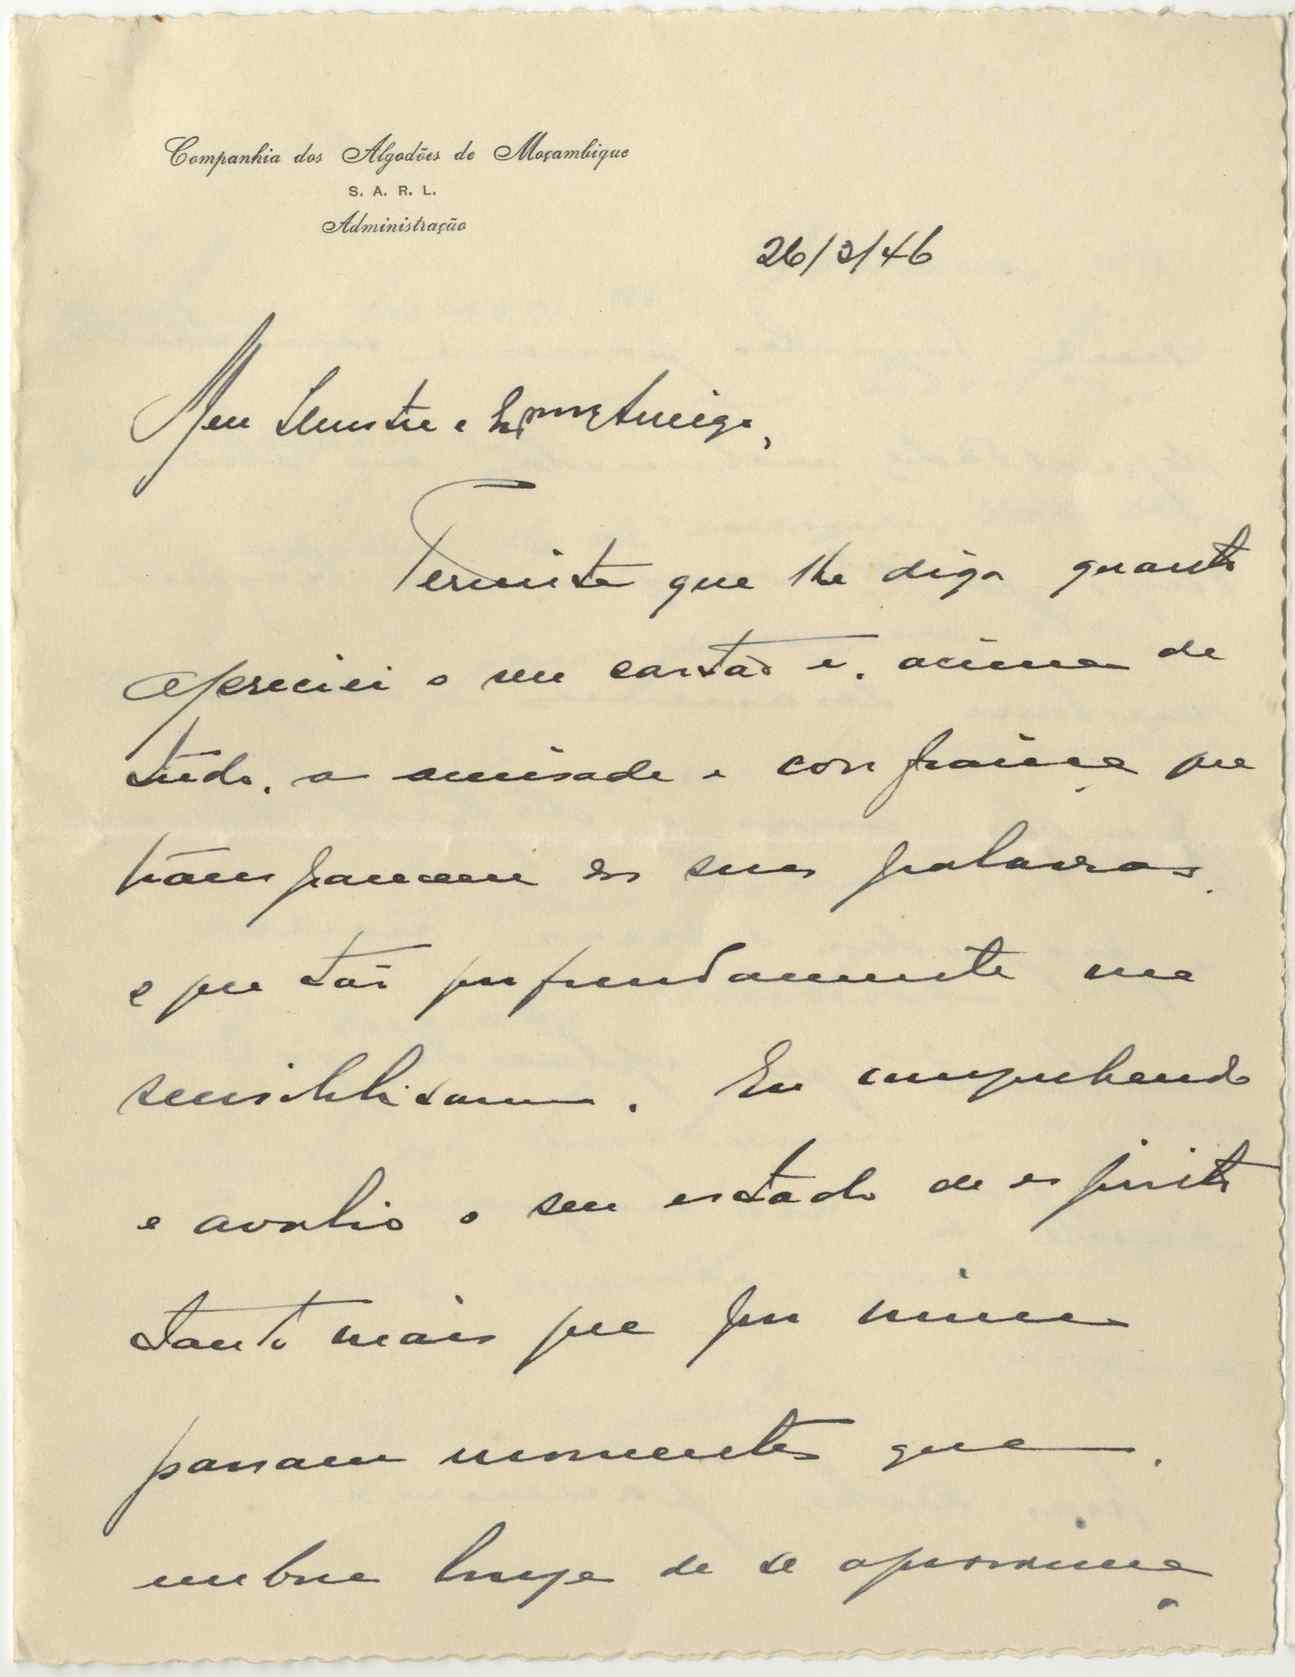 Companhia dos Algodões de Moçambique
S. A. R. L.
Administração
26/2/46
Meu Ilustre e Exmo Amigo,
Permita que lhe diga quanto
apreciei o seu cartão e, acima de
tudo, a amisade e confiança que
transparecem das suas palavras,
e que tão profundamente me
sensibilisaram. Eu comprehendo
e avalio o seu estado de espirito
tanto mais que por mim
passam momentos que,
embora longe de se aproximar